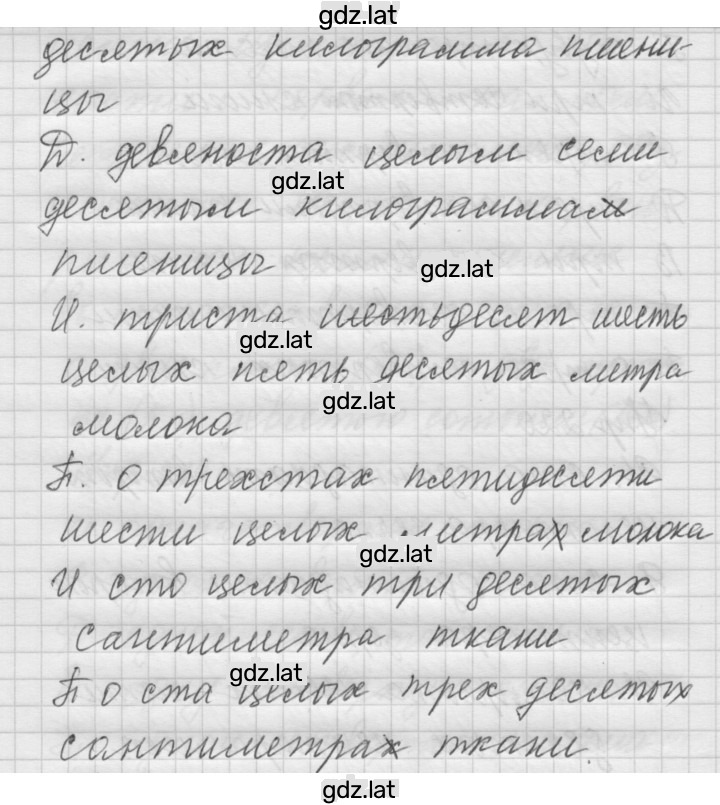 gdz.lat
десятых килограмма пшени-
цы
Д. девяноста целым семи
gdz.lat
десятым килограммам
пшеницы
gdz.lat
И. триста шестьдесят шесть
gdz.lat
целых пять десятых метра
gdz.lat
молока
П. о трехстах пятидесяти
шести целых метрах молока
gdz.lat
И сто целых три десятых
сантиметра ткани
gdz.lat
П о ста целых трех десятых
сантиметрах ткани.
gdz.lat